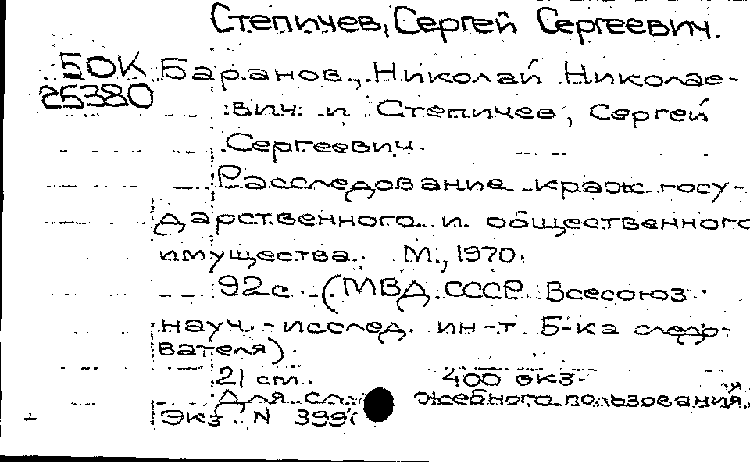 Степичев, Сергей Сергеевич.
БОК Баранов, Николай Николае-
25380 вич и Степичев, Сергей
Сергеевич.
Расследование краж госу-
дарственного и общественного
имущества. М., 1970.
92с. (МВД СССР. Всесоюз.
науч.-исслед. ин-т. Б-ка следо-
вателя).
21 см. 400 экз.
Для служебного пользования.
Экз. N